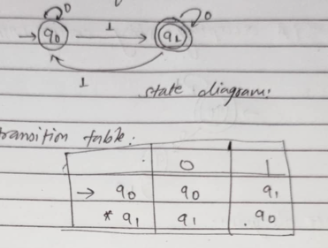 0 0
→ q0 1 q1
1
state diagram:
transition table:
0 1
→ q0 q0 q1
* q1 q1 q0